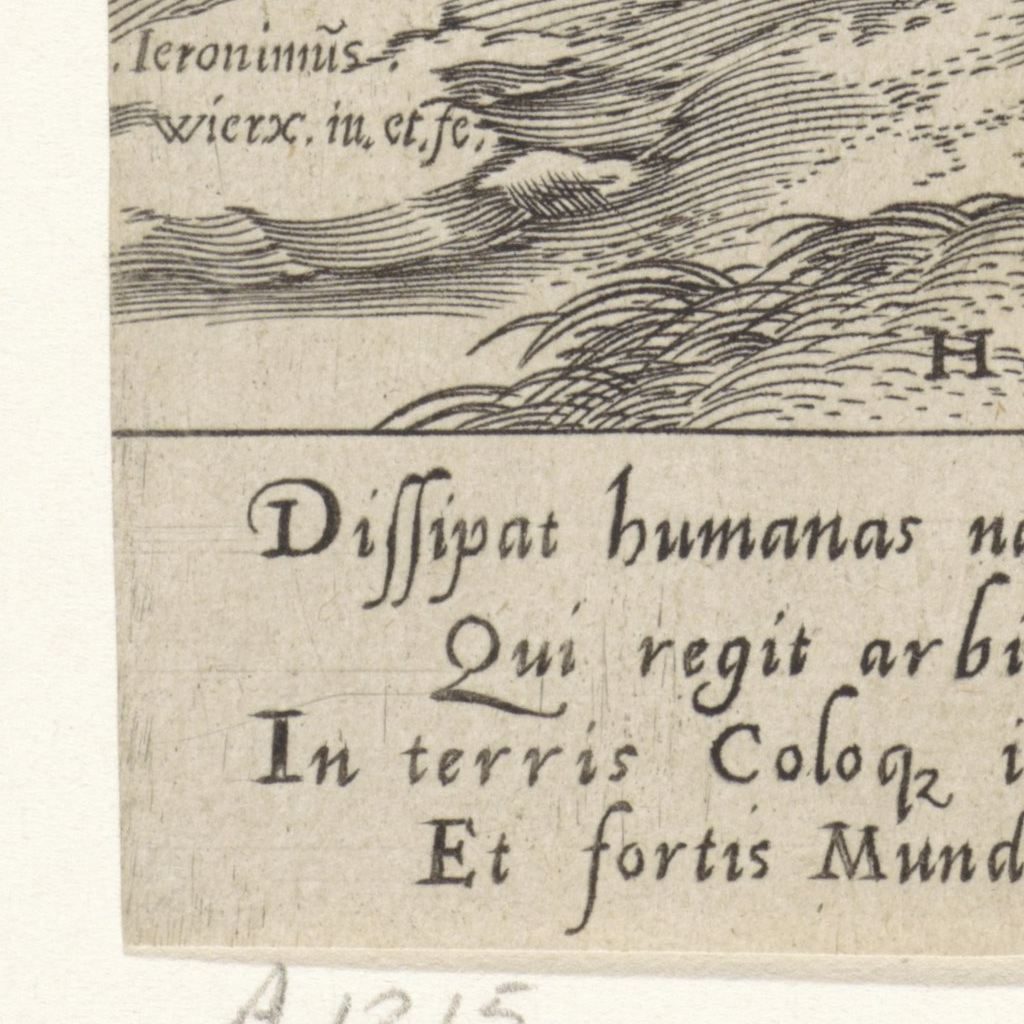 .Ieronimũs.
wierx. in. et. fe.
H
Dissipat humanas
Qui regit
In terris Coloqꝫ
Et fortis
A 1215